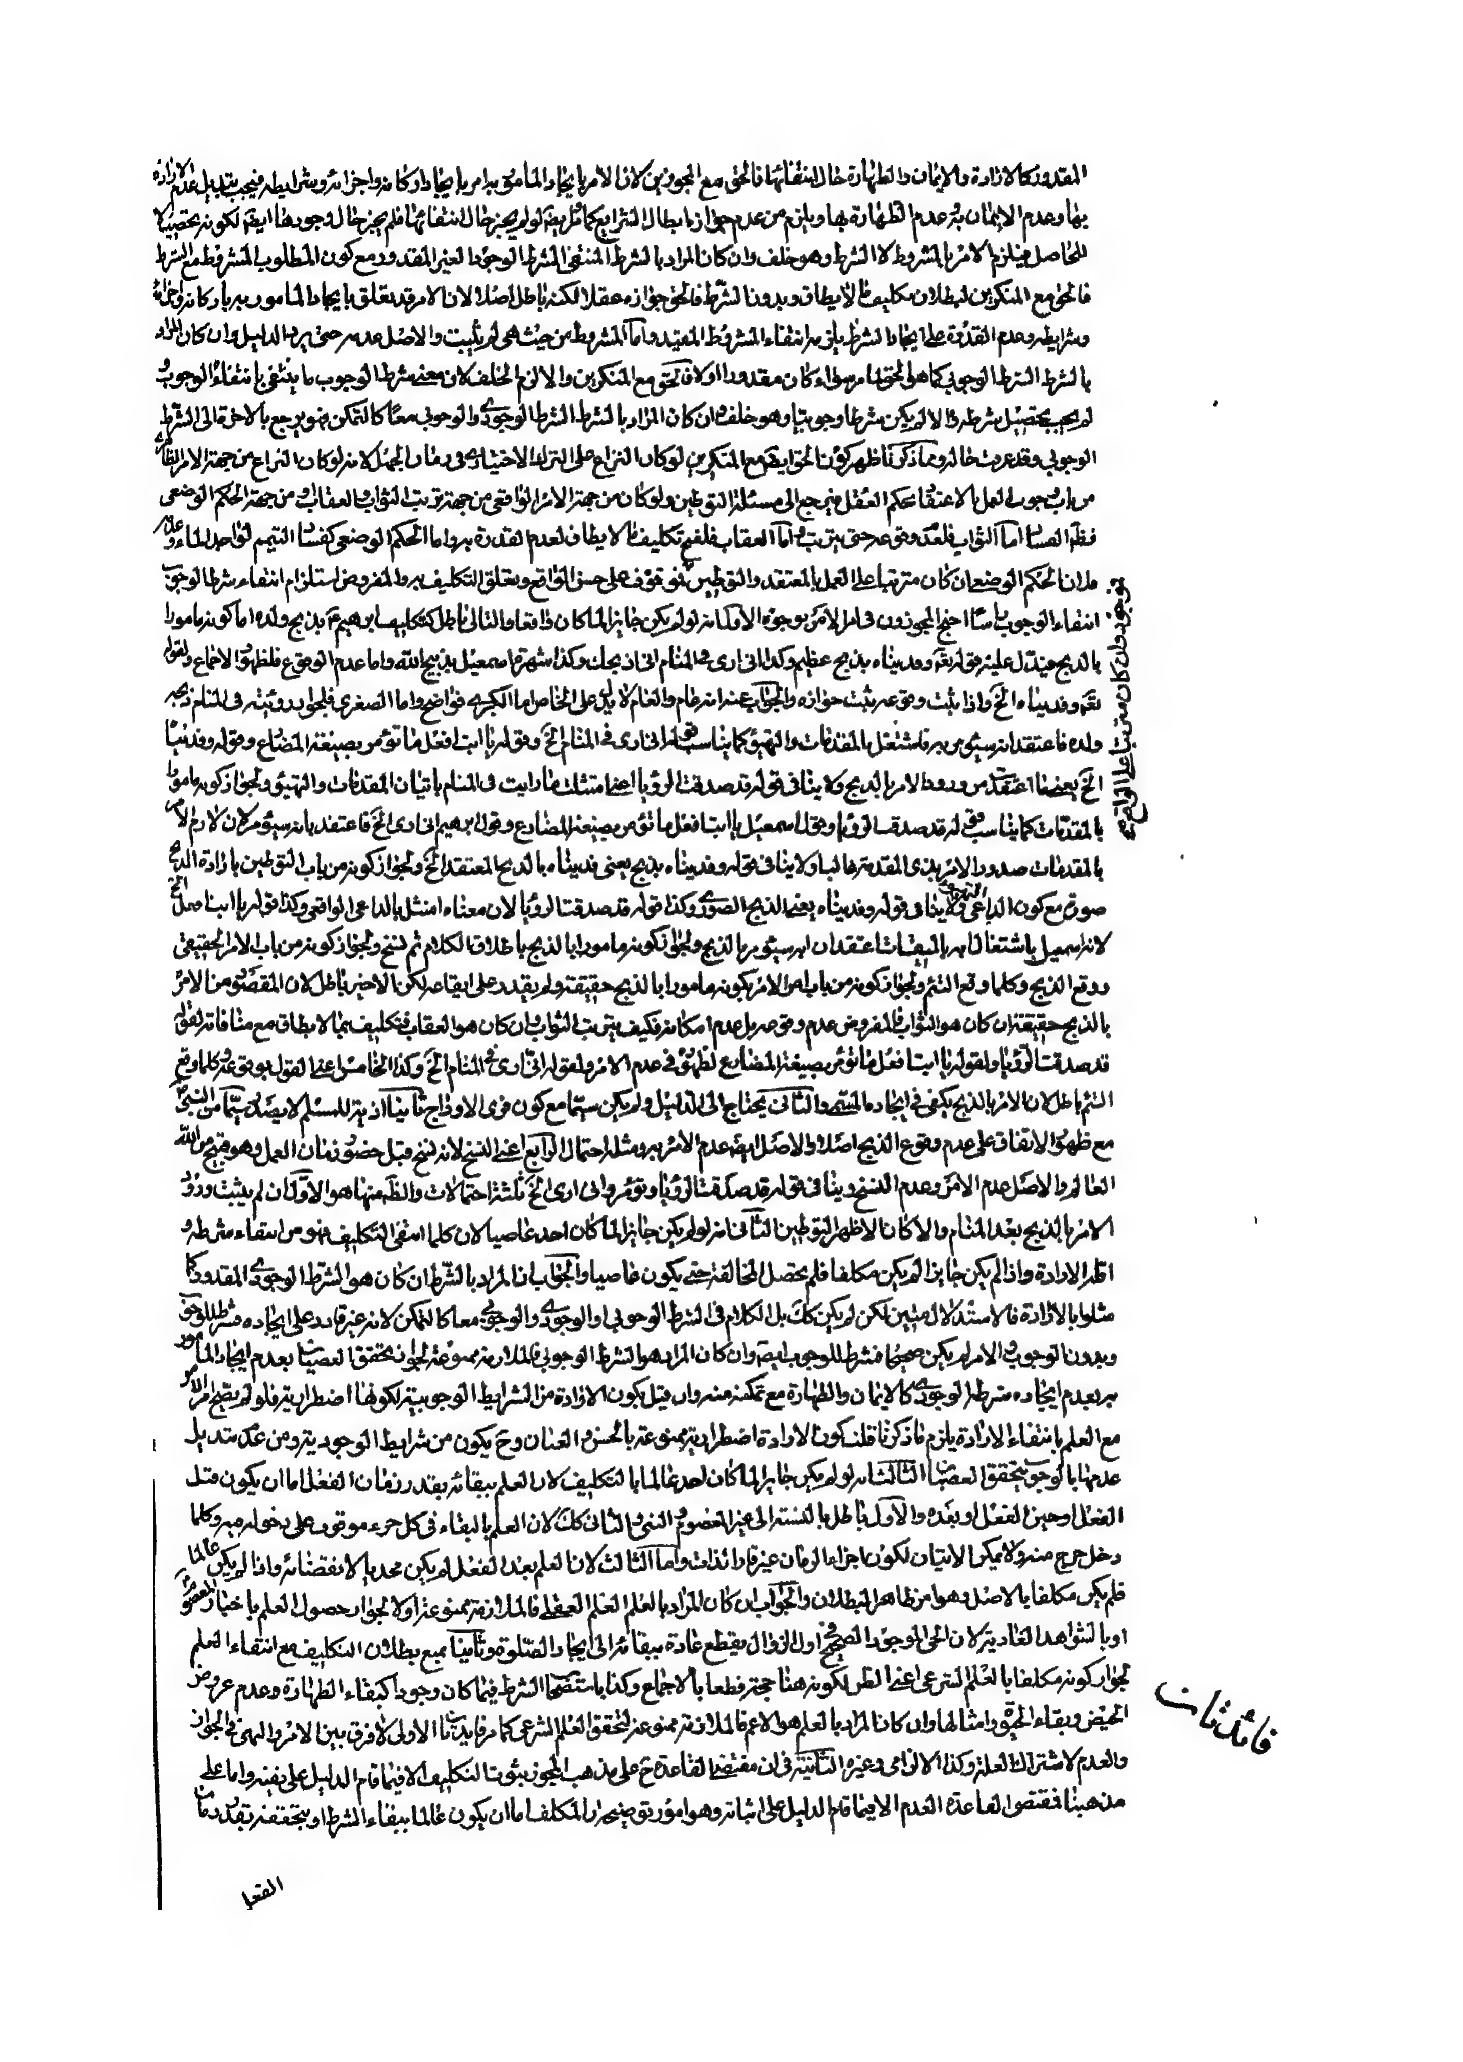 المقدور كالارادة والايمان والطهارة حال انتفائها فالحق مع المجوزين لان الامر بايجاد المأمور به امر بايجاد اركانه واجزائه وشرايطه فيجب تبديل عدم الارادة
بها وعدم الايمان به وعدم الطهارة بها ويلزم من عدم جوازه ابطال الشرايع كما قرر بل لو لم يجز حال انتفائها فلم يجز حال وجودها ايضا لكونه تحصيلا
للحاصل فيلزم الامر بالمشروط لا الشرط وهو خلف وان كان المراد بالشرط المنتفى الشرط الوجودى الغير المقدور مع كون المطلوب المشروط مع الشرط
فالحق مع المنكرين لبطلان تكليف ما لا يطاق وبدون الشرط فالحق جوازه عقلا لكنه باطل اصلا لان الامر قد تعلق بايجاد المأمور به باركانه واجزائه
وشرايطه وعدم القدرة على ايجاد الشرط يلزمه انتفاء المشروط المقيد واما المشروط من حيث هى لم يثبت والاصل عدمه حتى يرد الدليل وان كان المراد
بالشرط الشرط الوجوبى كما هو الحق لما مر سواء كان مقدورا او لا فالحق مع المنكرين والا لزم الخلف لان معنى شرط الوجوب ما ينتفى بانتفائه الوجوب و
لم يجب تحصيل شرطه والا لم يكن شرطا وجوبيا وهو خلف وان كان المراد بالشرط الشرط الوجودى والوجوبى معا كالتمكن فهو يرجع بالاخرة الى الشرط
الوجوبى وقد عرفت حاله ومما ذكرنا ظهر كون الحق ايضا مع المنكرين لو كان النزاع على الترك الاختيارى فى زمان الجهل لانه لو كان النزاع من جهة الامر الظاهرى
من باب وجوب العمل بالاعتقاد بحكم العقل فيرجع الى مسئلة التوطين ولو كان من جهة الامر الواقعى من جهة ترتب الثواب والعقاب او من جهة الحكم الوضعى
فظاهر الفساد اما الثواب فلعدم وقوعه حتى يترتب واما العقاب فلقبح تكليف ما لا يطاق لعدم القدرة به واما الحكم الوضعى كفساد التيمم لواجد الماء وعدمه
فلان الحكم الوضعى ان كان مترتبا على العمل بالمعتقد والتوطين فموقوف على حسن الواقع وتعلق التكليف به والمفروض استلزام انتفاء شرط الوجوب
انتفاء الوجوب راسا احتج المجوزون فى امر الامر بوجوه الاول انه لو لم يكن جايزا لما كان واقعا والتالى باطل لتكليف ابرهيم ع بذبح ولده اما كونه مامورا
بالذبح فيدل عليه قوله تعالى وفديناه بذبح عظيم وكذا انى ارى فى المنام انى اذبحك وكذا شهرة اسمعيل بذبيح الله واما عدم الوقوع فلظهور الاجماع ولقوله
تعالى وفديناه الخ واذا ثبت وقوعه ثبت جوازه والجواب عنه انه عام والعام لا يدل على الخاص اما الكبرى فواضح واما الصغرى فلجواز رؤيته فى المنام ذبح
ولده فاعتقد انه سيؤمر به فاشتغل بالمقدمات والتهيؤ كما يناسب قوله انى ارى فى المنام الخ وقوله يا ابت افعل ما تؤمر بصيغة المضارع وقوله وفديناه
الخ بعض ما اعتقدت من ورود الامر بالذبح ولا ينافى قوله قد صدقت الرؤيا اى امتثلت ما رايت فى المنام باتيان المقدمات والتهيؤ ولجواز كونه مامورا
بالمقدمات كما يناسب قوله قد صدقت الرؤيا وقول اسمعيل يا ابت افعل ما تؤمر بصيغة المضارع وقول ابرهيم انى ارى الخ فاعتقد بانه سيؤمر لان لازم الامر
بالمقدمات صدور الامر بذى المقدمة غالبا ولا ينافى قوله وفديناه بذبح يعنى فديناه بالذبح المعتقد الخ ولجواز كونه من باب التوطين بارادة الذبح
صورة مع كون الداعى ولا ينافى قوله وفديناه يعنى الذبح الصورى وكذا قوله قد صدقت الرؤيا لان معناه امتثل بالداعى الواقعى وكذا قوله يا ابت افعل الخ
لان اسمعيل باشتغال ابيه بالمقدمات اعتقد ان ابيه سيؤمر بالذبح ولجواز كونه مامورا بالذبح باطلاق الكلام ثم نسخ ولجواز كونه من باب الامر الحقيقى
ووقع الذبح وكلما وقع التئم ولجواز كونه من باب امر الامر بكونه مامورا بالذبح حقيقة ولم يقدر على ايقاعه لكن الاخير باطل لان المقصود من الامر
بالذبح حقيقة ان كان هو الثواب فالمفروض عدم وقوعه بل عدم امكانه فكيف يترتب الثواب وان كان هو العقاب فتكليف بما لا يطاق مع منافاته لقوله
قد صدقت الرؤيا ولقوله يا ابت افعل ما تؤمر بصيغة المضارع لظهوره فى عدم الامر ولقوله انى ارى فى المنام الخ وكذا الخامس اعنى القول بوقوعه وكلما وقع
التئم باطل لان الامر بالذبح يكفى فى ايجاده المسمى والثانى يحتاج الى الدليل ولم يكن سيما مع كون فرى الاوداج ثانيا اذية للمسلم لا يصدر سيما من النبى
مع ظهور الاتفاق على عدم وقوع الذبح اصلا والاصل ايضا عدم الامر به ومثله احتمال الرابع اعنى النسخ لانه نسخ قبل حضور زمان العمل وهو قبيح من الله
العالم والاصل عدم الامر وعدم النسخ وينافى قوله قد صدقت الرؤيا وتؤمر وانى ارى الخ ثلثة احتمالات والظاهر منها هو الاول ان لم يثبت ورود
الامر بالذبح بعد المنام والا كان الاظهر التوطين الثانى انه لو لم يكن جايزا لما كان احد عاصيا لان كلما انتفى التكليف فهو من انتفاء شرطه و
اقله الارادة واذا لم يكن جايزا لم يكن مكلفا فلم يحصل المخالفة حتى يكون عاصيا والجواب ان المراد بالشرط ان كان هو الشرط الوجودى المقدور كما
مثلوا بالارادة فالاستدلال متين لكن لم يكن كك بل الكلام فى الشرط الوجوبى او الوجودى والوجوبى معا كالتمكن لانه غير قادر على ايجاده فشرط للوجوب
وبدون الوجوب والامر لم يكن صحيحا فشرط للوجوب ايضا وان كان المراد هو الشرط الوجوبى فالملازمة ممنوعة لجواز تحقق العصيان بعدم ايجاد المأمور
به بعدم ايجاده شرطه الوجودى كالايمان والطهارة مع تمكنه منه وان قيل بكون الارادة من الشرايط الوجوبية لكونها اضطرارية فلو لم يصح امر الامر
مع العلم بانتفاء الارادة يلزم ما ذكرنا قلت كون الارادة اضطرارية ممنوعة بالحس والعيان وح يكون من شرايط الوجودية ومن عدم تبديل
عدمها بالوجود يتحقق العصيان الثالث انه لو لم يكن جايزا لما كان احد عالما بالتكليف لان العلم ببقائه بقدر زمان الفعل اما ان يكون قبل
الفعل او حين الفعل او بعده والاول باطل بالنسبة الى غير المعصوم والنبى والثانى كك لان العلم بالبقاء فى كل جزء موقوف على دخوله فيه وكلما
دخل خرج منه ولا يمكن الاتيان لكون اجزاء الزمان غير قار الذات واما الثالث لان العلم بعد الفعل لم يكن مجديا لانقضائه واذا لم يكن عالما
فلم يكن مكلفا بالاصل وهو امر ظاهر البطلان والجواب ان كان المراد بالعلم العلم العقلى فالملازمة ممنوعة اولا لجواز حصول العلم باخبار المعصوم
او بالشواهد العادية لان الحى الموجود الصحيح فى اول الزوال يقطع عادة ببقائه الى ايجاد الصلوة وثانيا نمنع بطلان التكليف مع انتفاء العلم
لجواز كونه مكلفا بالعلم الشرعى اعنى الظن لكونه هنا حجة قطعا بالاجماع وكذا باستصحاب الشرط فيما كان وجودا كبقاء الطهارة وعدم عروض
الحيض وبقاء الحيوة وامثالها وان كان المراد بالعلم هو الاعم فالملازمة ممنوعة لتحقق العلم الشرعى كما مر فايدتان الاولى لا فرق بين الامر والنهى فى الجواز
والعدم لاشتراك العلة وكذا الالزامى وغيره الثانية فى ان مقتضى القاعدة ح على مذهب المجوز ثبوت التكليف الا فيما قام الدليل على نفيه واما على
مذهبنا فمقتضى القاعدة العدم الا فيما قام الدليل على اثباته وهو امور توضيحه ان المكلف اما ان يكون عالما ببقاء الشرط او بتحققه بقدر زمان
الفعل
فائدتان